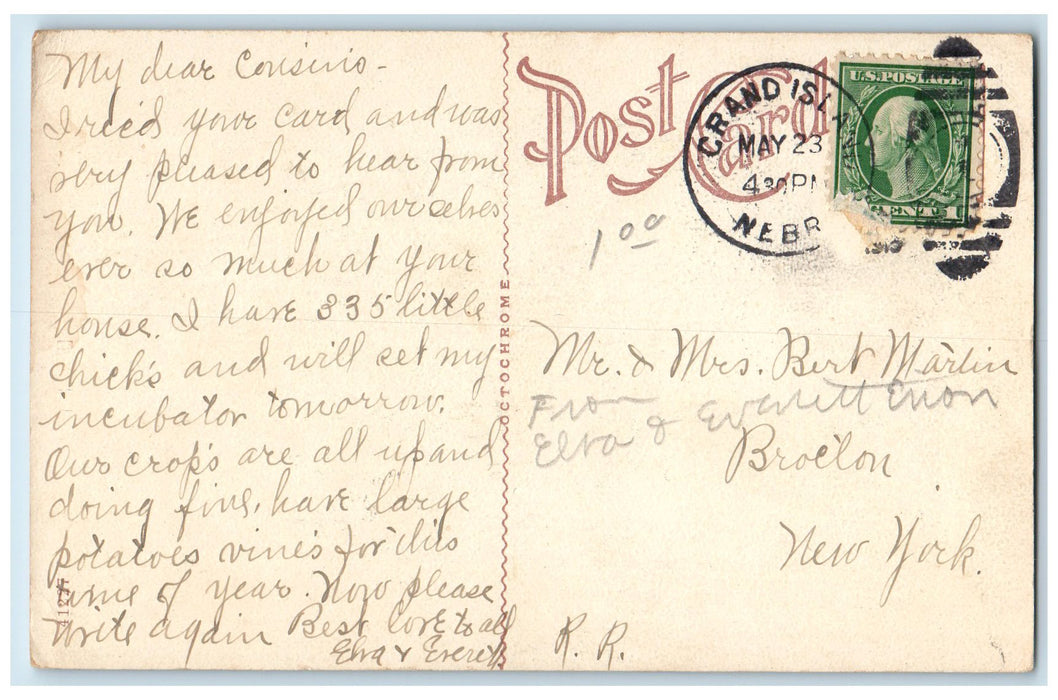 My dear Cousins -
I rec'd your card and was
very pleased to hear from
you. We enjoyed ourselves
ever so much at your
house. I have 335 little
chicks and will set my
incubator tomorrow.
Our crops are all up and
doing fine, have large
potatoes vines for this
time of year. Now please
write again Best love to all
Elva & Everett
OCTOCHROME
Post Card
GRAND ISLAND
MAY 23
4 30 PM
NEBR
U.S. POSTAGE
CENT 1
1 00
Mr. & Mrs. Bert Martin
From
Elva & Everett
Brocton
New York.
R. R.